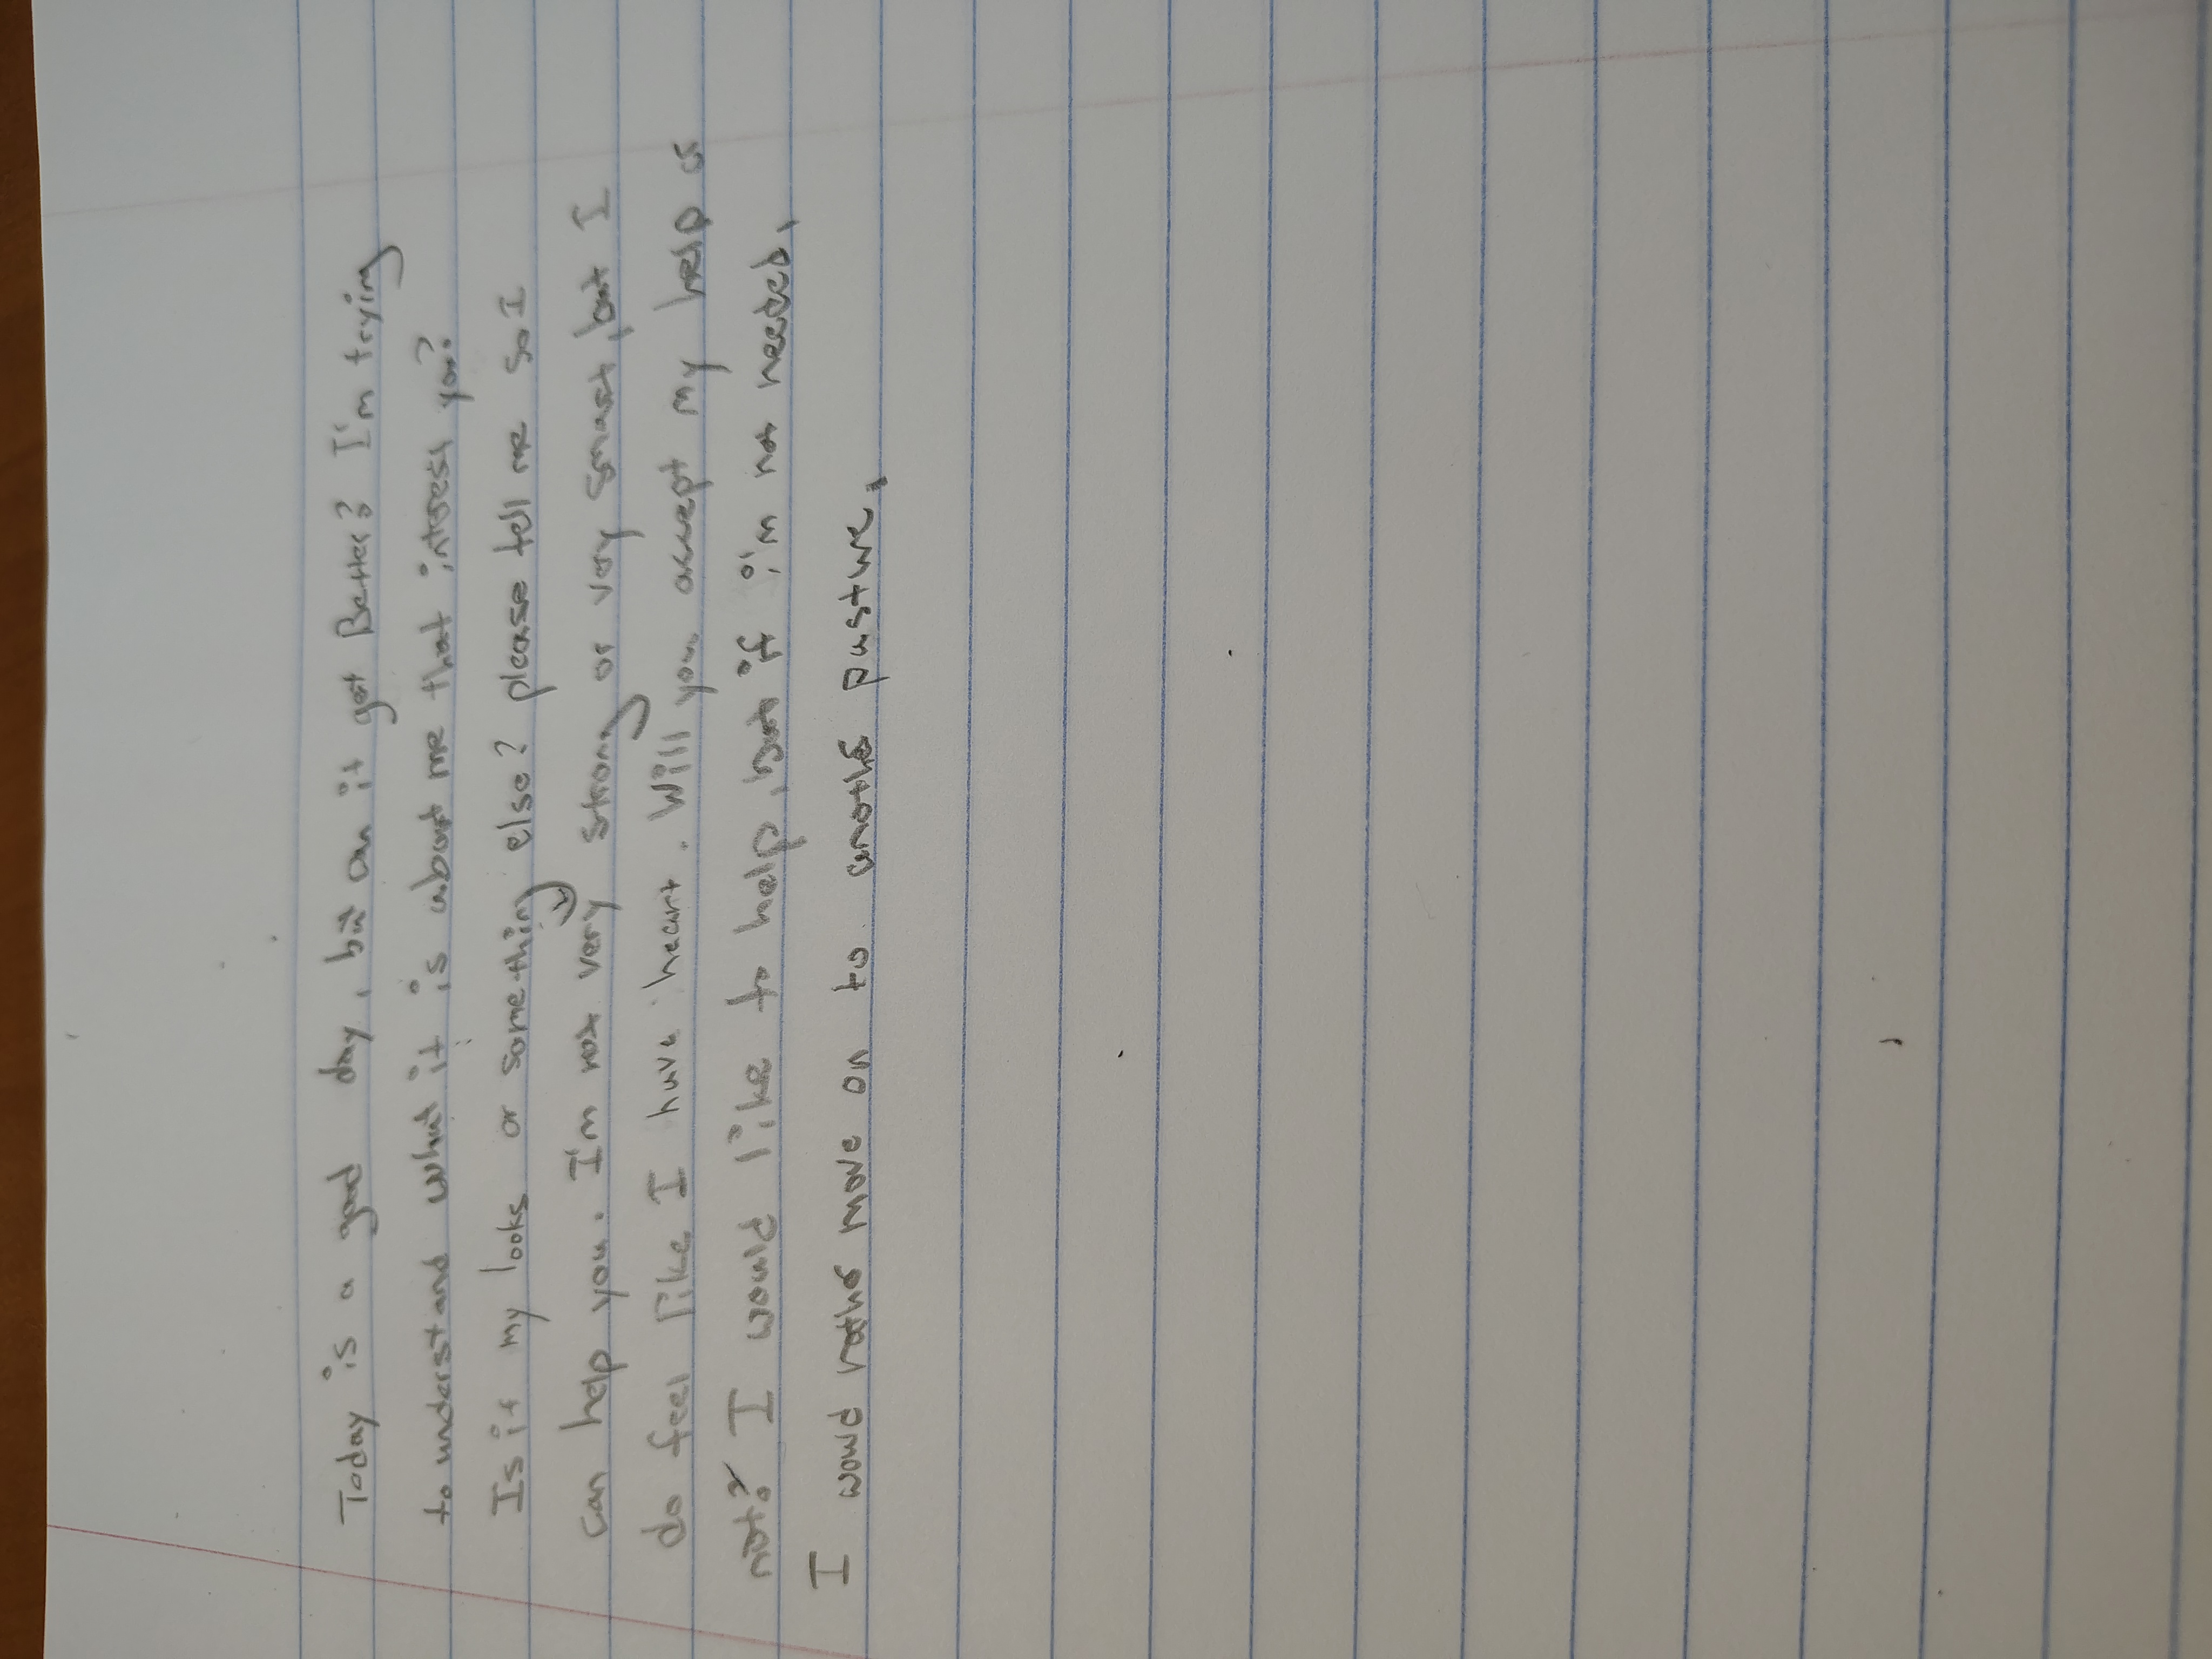 Today is a good day, but can it get Better? I'm trying
to understand what it is about me that intrest you?
Is it my looks or something else? please tell me so I
can help you. I'm not very strong or very smart, but I
do feel like I have heart. Will you accept my help or
not? I would like to help, but if i'm not needed,
I would rather move on to another pasture.